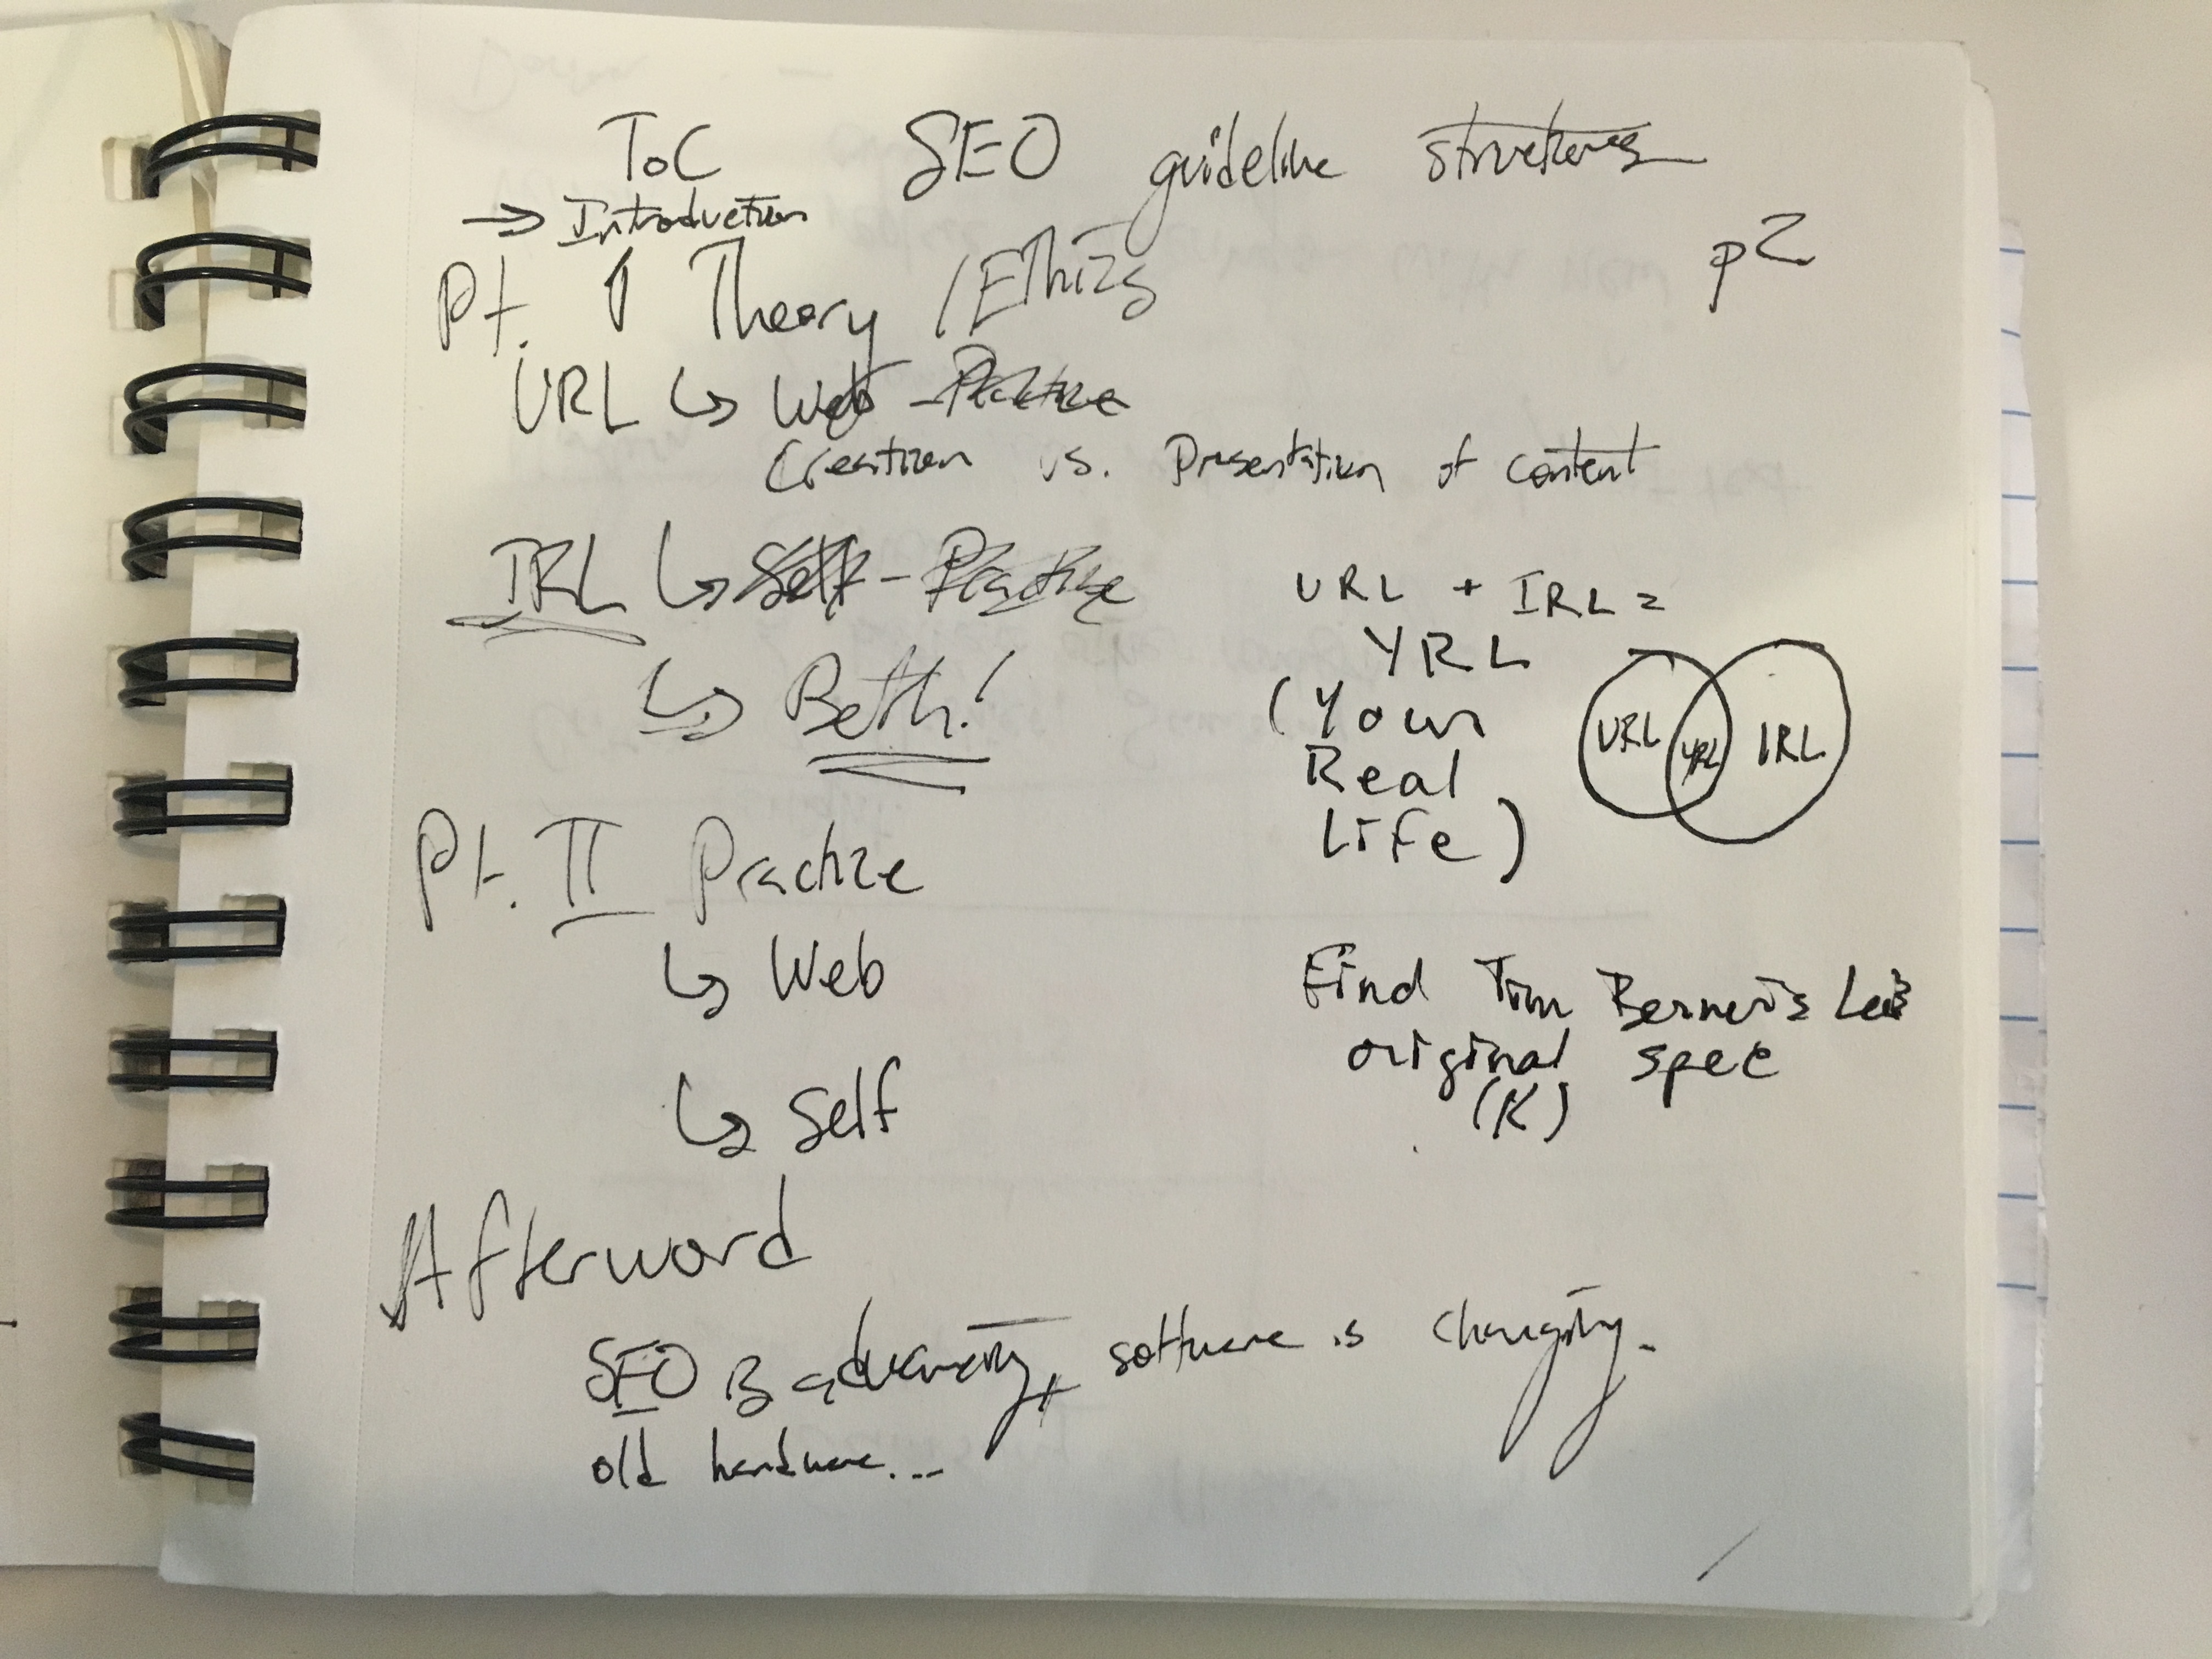 ToC SEO guideline structures
→ Introduction p2
Pt I Theory / Ethics
URL ↳ Web - Practice
Creation vs. Presentation of content
IRL ↳ Self - Practice
↳ Both!
URL + IRL =
YRL
(Your
Real
Life)
URL YRL IRL
Pt. II Practice
↳ Web
↳ Self
Find Tim Berner's Lee's
original spec
(K)
Afterword
SEO is adversity software is changing.
old hardware...